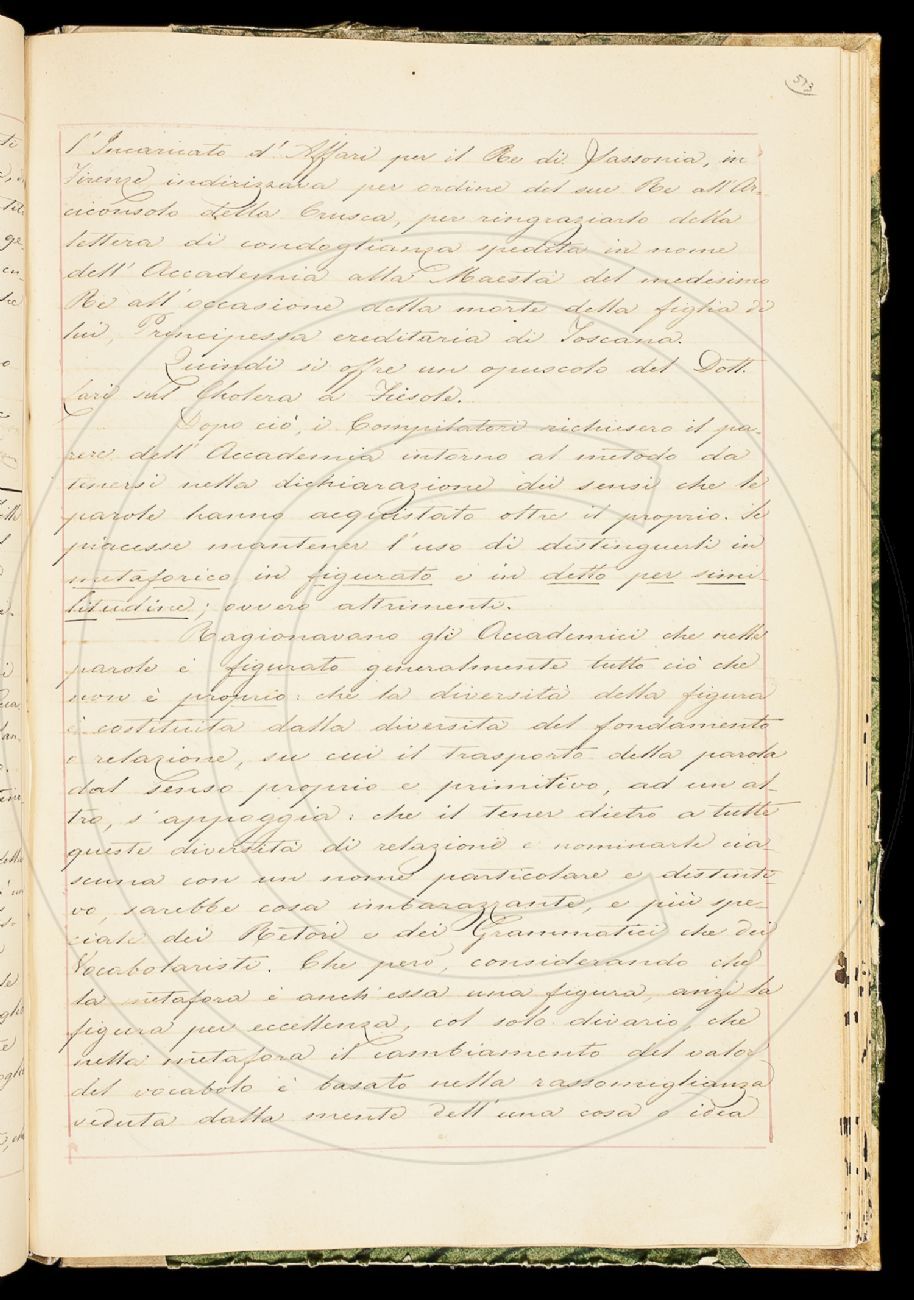 513
l'Incaricato d'Affari per il Re di Sassonia, in
Firenze indirizzava per ordine del suo Re all'Ar-
ciconsolo della Crusca, per ringraziarlo della
lettera di condoglianza spedita in nome
dell'Accademia alla Maestà del medesimo
Re all'occasione della morte della figlia di
lui, Principessa ereditaria di Toscana.
Quindi si offre un opuscolo del Dott.
sul Cholera a Fiesole.
Dopo ciò, i Compilatori richiesero il pa-
rere dell'Accademia intorno al metodo da
tenersi nella dichiarazione dei sensi che le
parole hanno acquistato oltre il proprio. Se
piacesse mantener l'uso di distinguerli in
metaforico in figurato e in detto per simi-
litudine; ovvero altrimenti.
Ragionavano gli Accademici che nelle
parole è figurato generalmente tutto ciò che
non è proprio: che la diversità della figura
è costituita dalla diversità del fondamento
o relazione, su cui il trasporto della parola
dal senso proprio e primitivo, ad un al-
tro, s'appoggia: che il tener dietro a tutte
queste diversità di relazione e nominarle cia-
scuna con un nome particolare e distinti-
vo, sarebbe cosa imbarazzante, e più spe-
ciale dei Retori e dei Grammatici che dei
Vocabolaristi. Che però, considerando che
la metafora è anch'essa una figura, anzi la
figura per eccellenza, col solo divario, che
nella metafora il cambiamento del valor
del vocabolo è basato nella rassomiglianza
veduta dalla mente dell'una cosa o idea